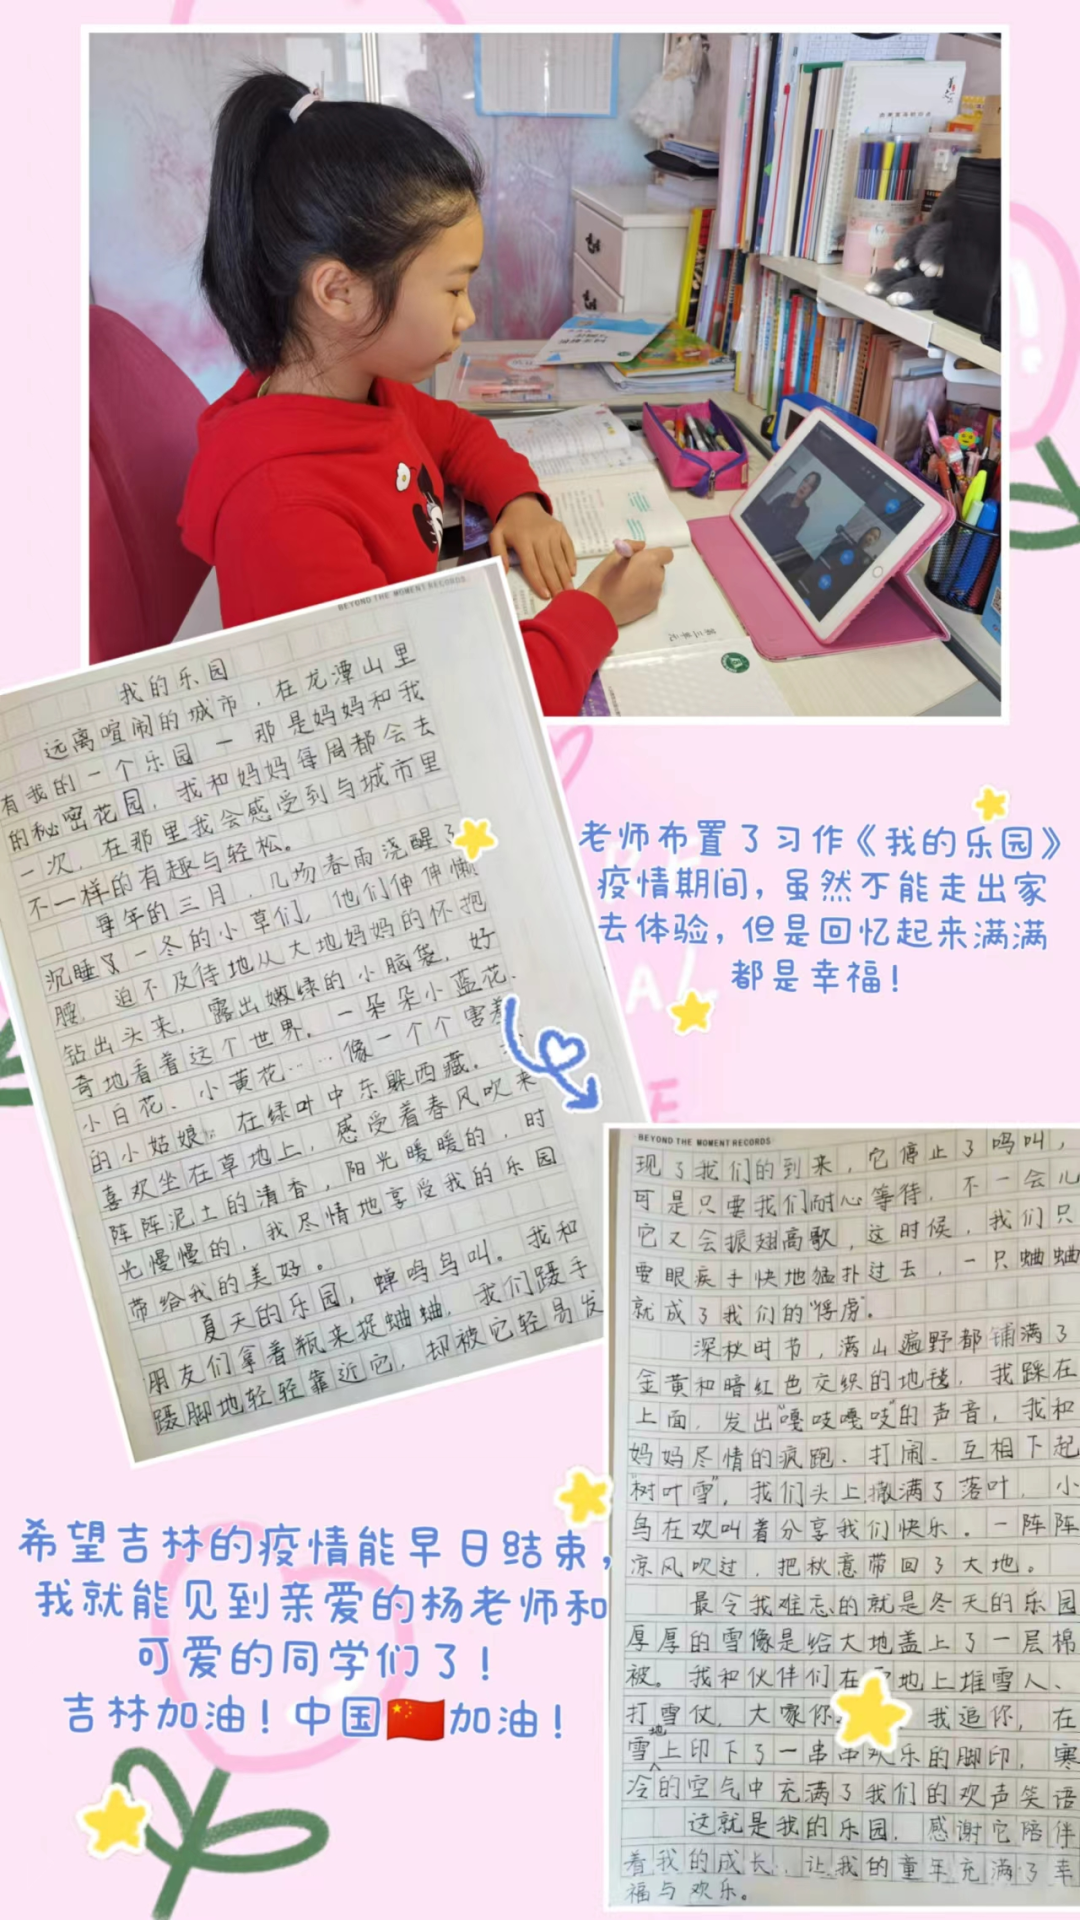 第三单元
BEYOND THE MOMENT RECORDS
我的乐园
远离喧闹的城市，在龙潭山里
有我的一个乐园—那是妈妈和我
的秘密花园，我和妈妈每周都会去
一次，在那里我会感受到与城市里
不一样的有趣与轻松。
每年的三月，几场春雨浇醒了
沉睡了一冬的小草们，他们伸伸懒
腰，迫不及待地从大地妈妈的怀抱
钻出头来，露出嫩绿的小脑袋，好
奇地看着这个世界。一朵朵小蓝花、
小白花、小黄花……像一个个害羞
的小姑娘，在绿叶中东躲西藏。
喜欢坐在草地上，感受着春风吹来
阵阵泥土的清香，阳光暖暖的，时
光慢慢的，我尽情地享受我的乐园
带给我的美好。
夏天的乐园，蝉鸣鸟叫。我和
朋友们拿着瓶来捉蛐蛐，我们蹑手
蹑脚地轻轻靠近它，却被它轻易发
老师布置了习作《我的乐园》
疫情期间，虽然不能走出家
去体验，但是回忆起来满满
都是幸福！
BEYOND THE MOMENT RECORDS
现了我们的到来，它停止了鸣叫，
可是只要我们耐心等待，不一会儿
它又会振翅高歌，这时候，我们只
要眼疾手快地猛扑过去，一只蛐蛐
就成了我们的“俘虏”。
深秋时节，满山遍野都铺满了
金黄和暗红色交织的地毯，我踩在
上面，发出“嘎吱嘎吱”的声音，我和
妈妈尽情的疯跑、打闹、互相下起
“树叶雪”，我们头上撒满了落叶，小
鸟在欢叫着分享我们快乐。一阵阵
凉风吹过，把秋意带回了大地。
最令我难忘的就是冬天的乐园
厚厚的雪像是给大地盖上了一层棉
被。我和伙伴们在地上堆雪人、
打雪仗，大家你 我追你，在
雪地上印下了一串串欢乐的脚印，寒
冷的空气中充满了我们的欢声笑语
这就是我的乐园，感谢它陪伴
着我的成长，让我的童年充满了幸
福与欢乐。
希望吉林的疫情能早日结束，
我就能见到亲爱的杨老师和
可爱的同学们了！
吉林加油！中国🇨🇳加油！